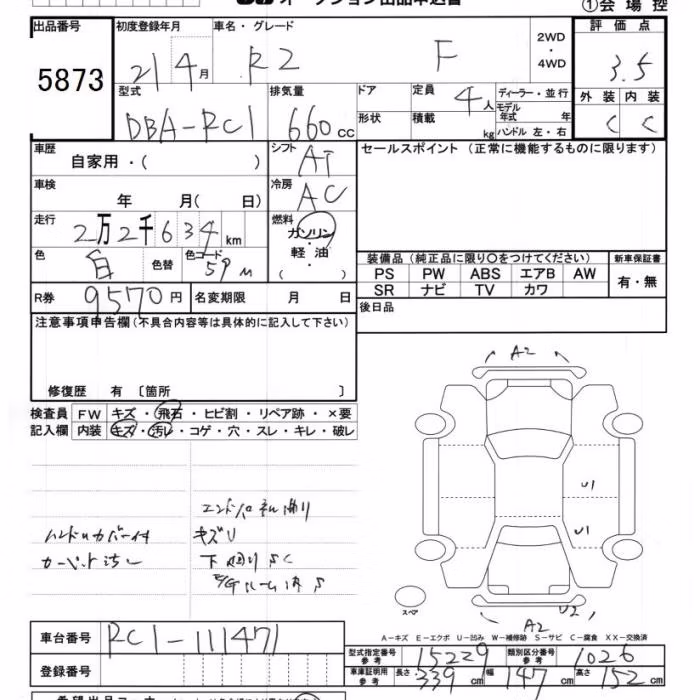 オークション出品申込書
①会場控
出品番号 5873
初度登録年月 21 4月
車名・グレード R2 F
2WD・4WD
評価点 3.5
型式 DBA-RC1
排気量 660cc
ドア 形状
定員 4人
積載 kg
ディーラー・並行
モデル年式 年
ハンドル 左・右
外装 C 内装 C
車歴 自家用・( )
シフト AT
セールスポイント(正常に機能するものに限ります)
車検 年 月( 日)
冷房 AC
走行 2万2千634km
燃料 ガソリン・軽油 ( )
色 白 色替 色コード 59M
装備品(純正品に限り○をつけてください)
新車保証書
PS PW ABS エアB AW
有・無
SR ナビ TV カワ
R券 9570円 名変期限 月 日
後日品
注意事項申告欄(不具合内容等は具体的に記入して下さい)
修復歴 有〔箇所 〕
検査員 FW キズ・飛石・ヒビ割・リペア跡・×要
記入欄 内装 キズ・汚レ・コゲ・穴・スレ・キレ・破レ
ハンドルカバー付
カーペット汚レ
キズU
下廻りSC
E/Gルーム内S
A2
U1
U1
U2
A2
スペア
A-キズ E-エクボ U-凹み W-補修跡 S-サビ C-腐食 XX-交換済
車台番号 RC1-111471
型式指定番号 参考 15229 類別区分番号 参考 1026
登録番号
車庫証明用 参考 長さ 339cm 幅 147cm 高さ 152cm